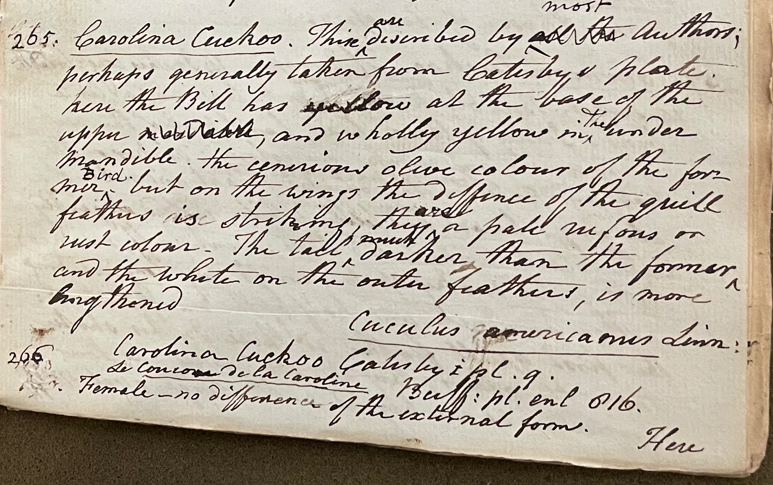 most
265. Carolina Cuckoo. These are discribed by all the Authors;
perhaps generally taken from Catesby's plate.
here the Bill has yellow at the base of the
upper mandible, and wholly yellow in the under
mandible. the cenerious olive colour of the for-
mer Bird. but on the wings the diffence of the quill
feathers is striking, they are a pale rufous or
rust colour. The tail much darker than the former,
and the white on the outer feathers, is more
lengthened
Cuculus americanus Linn:
266 Carolina Cuckoo Catesby: pl. 9.
Le Coucou de la Caroline Buff: pl. enl 816.
Female – no difference of the external form.
Here